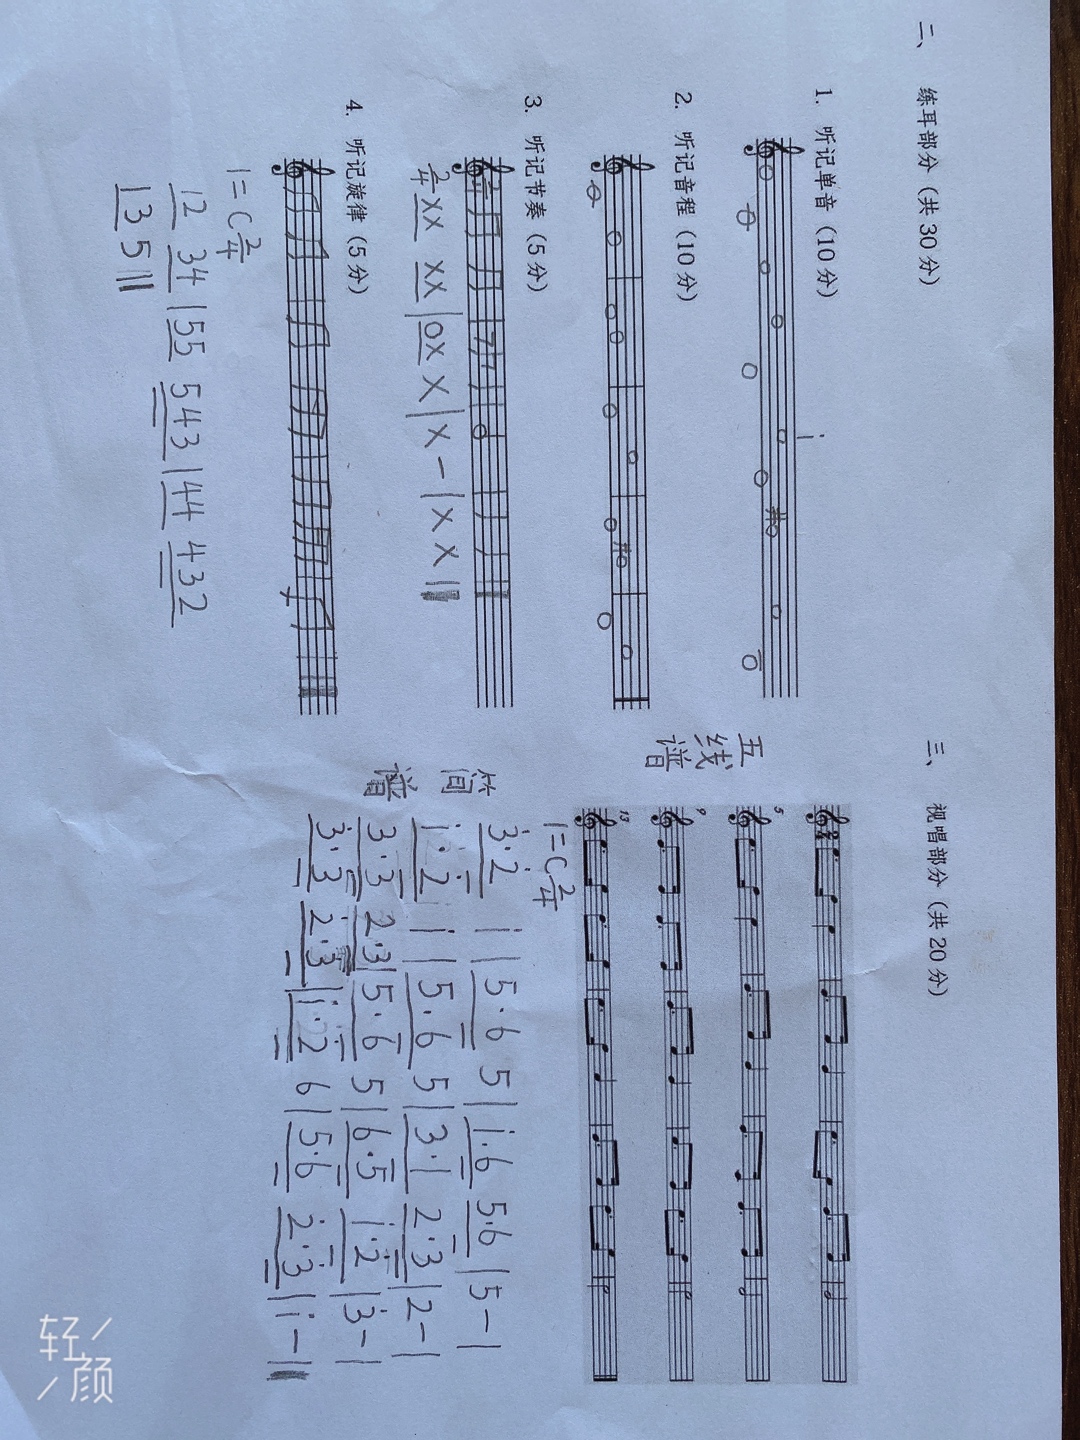 二、 练耳部分（共 30 分）
1. 听记单音（10 分）
2. 听记音程（10 分）
3. 听记节奏（5 分）
2/4 XX XX | 0X X | X - | X X ‖
4. 听记旋律（5 分）
1=C 2/4
12 34 | 55 543 | 44 432
13 5 ‖
三、 视唱部分（共 20 分）
五线谱
5
9
13
简谱
1=C 2/4
3·2 1 | 5·6 5 | 1·6 5·6 | 5 - |
1·2 1 | 5·6 5 | 3·1 2·3 | 2 - |
3·3 2·3 | 5·6 5 | 6·5 1·2 | 3 - |
3·3 2·3 | 1·2 6 | 5·6 2·3 | 1 - ‖
轻颜